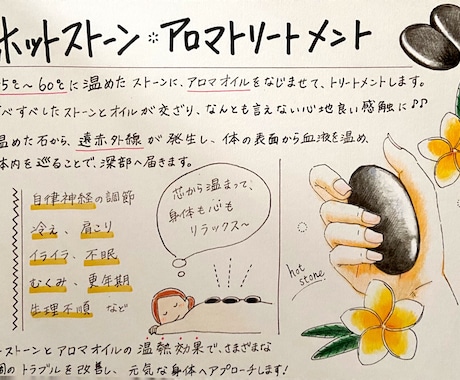 ホットストーン※アロマトリートメント
5℃〜60℃に温めたストーンに、アロマオイルをなじませて、トリートメントします。
べすべしたストーンとオイルが交ざり、なんとも言えない心地良い感触に♪♪
温めた石から、遠赤外線が発生し、体の表面から血液を温め、
体内を巡ることで、深部へ届きます。
自律神経の調節
冷え、肩こり
イライラ、不眠
むくみ、更年期
生理不順 など
芯から温まって、
身体も心も
リラックス〜
hot
stone
ストーンとアロマオイルの温熱効果で、さまざまな
のトラブルを改善し、元気な身体へアプローチします!